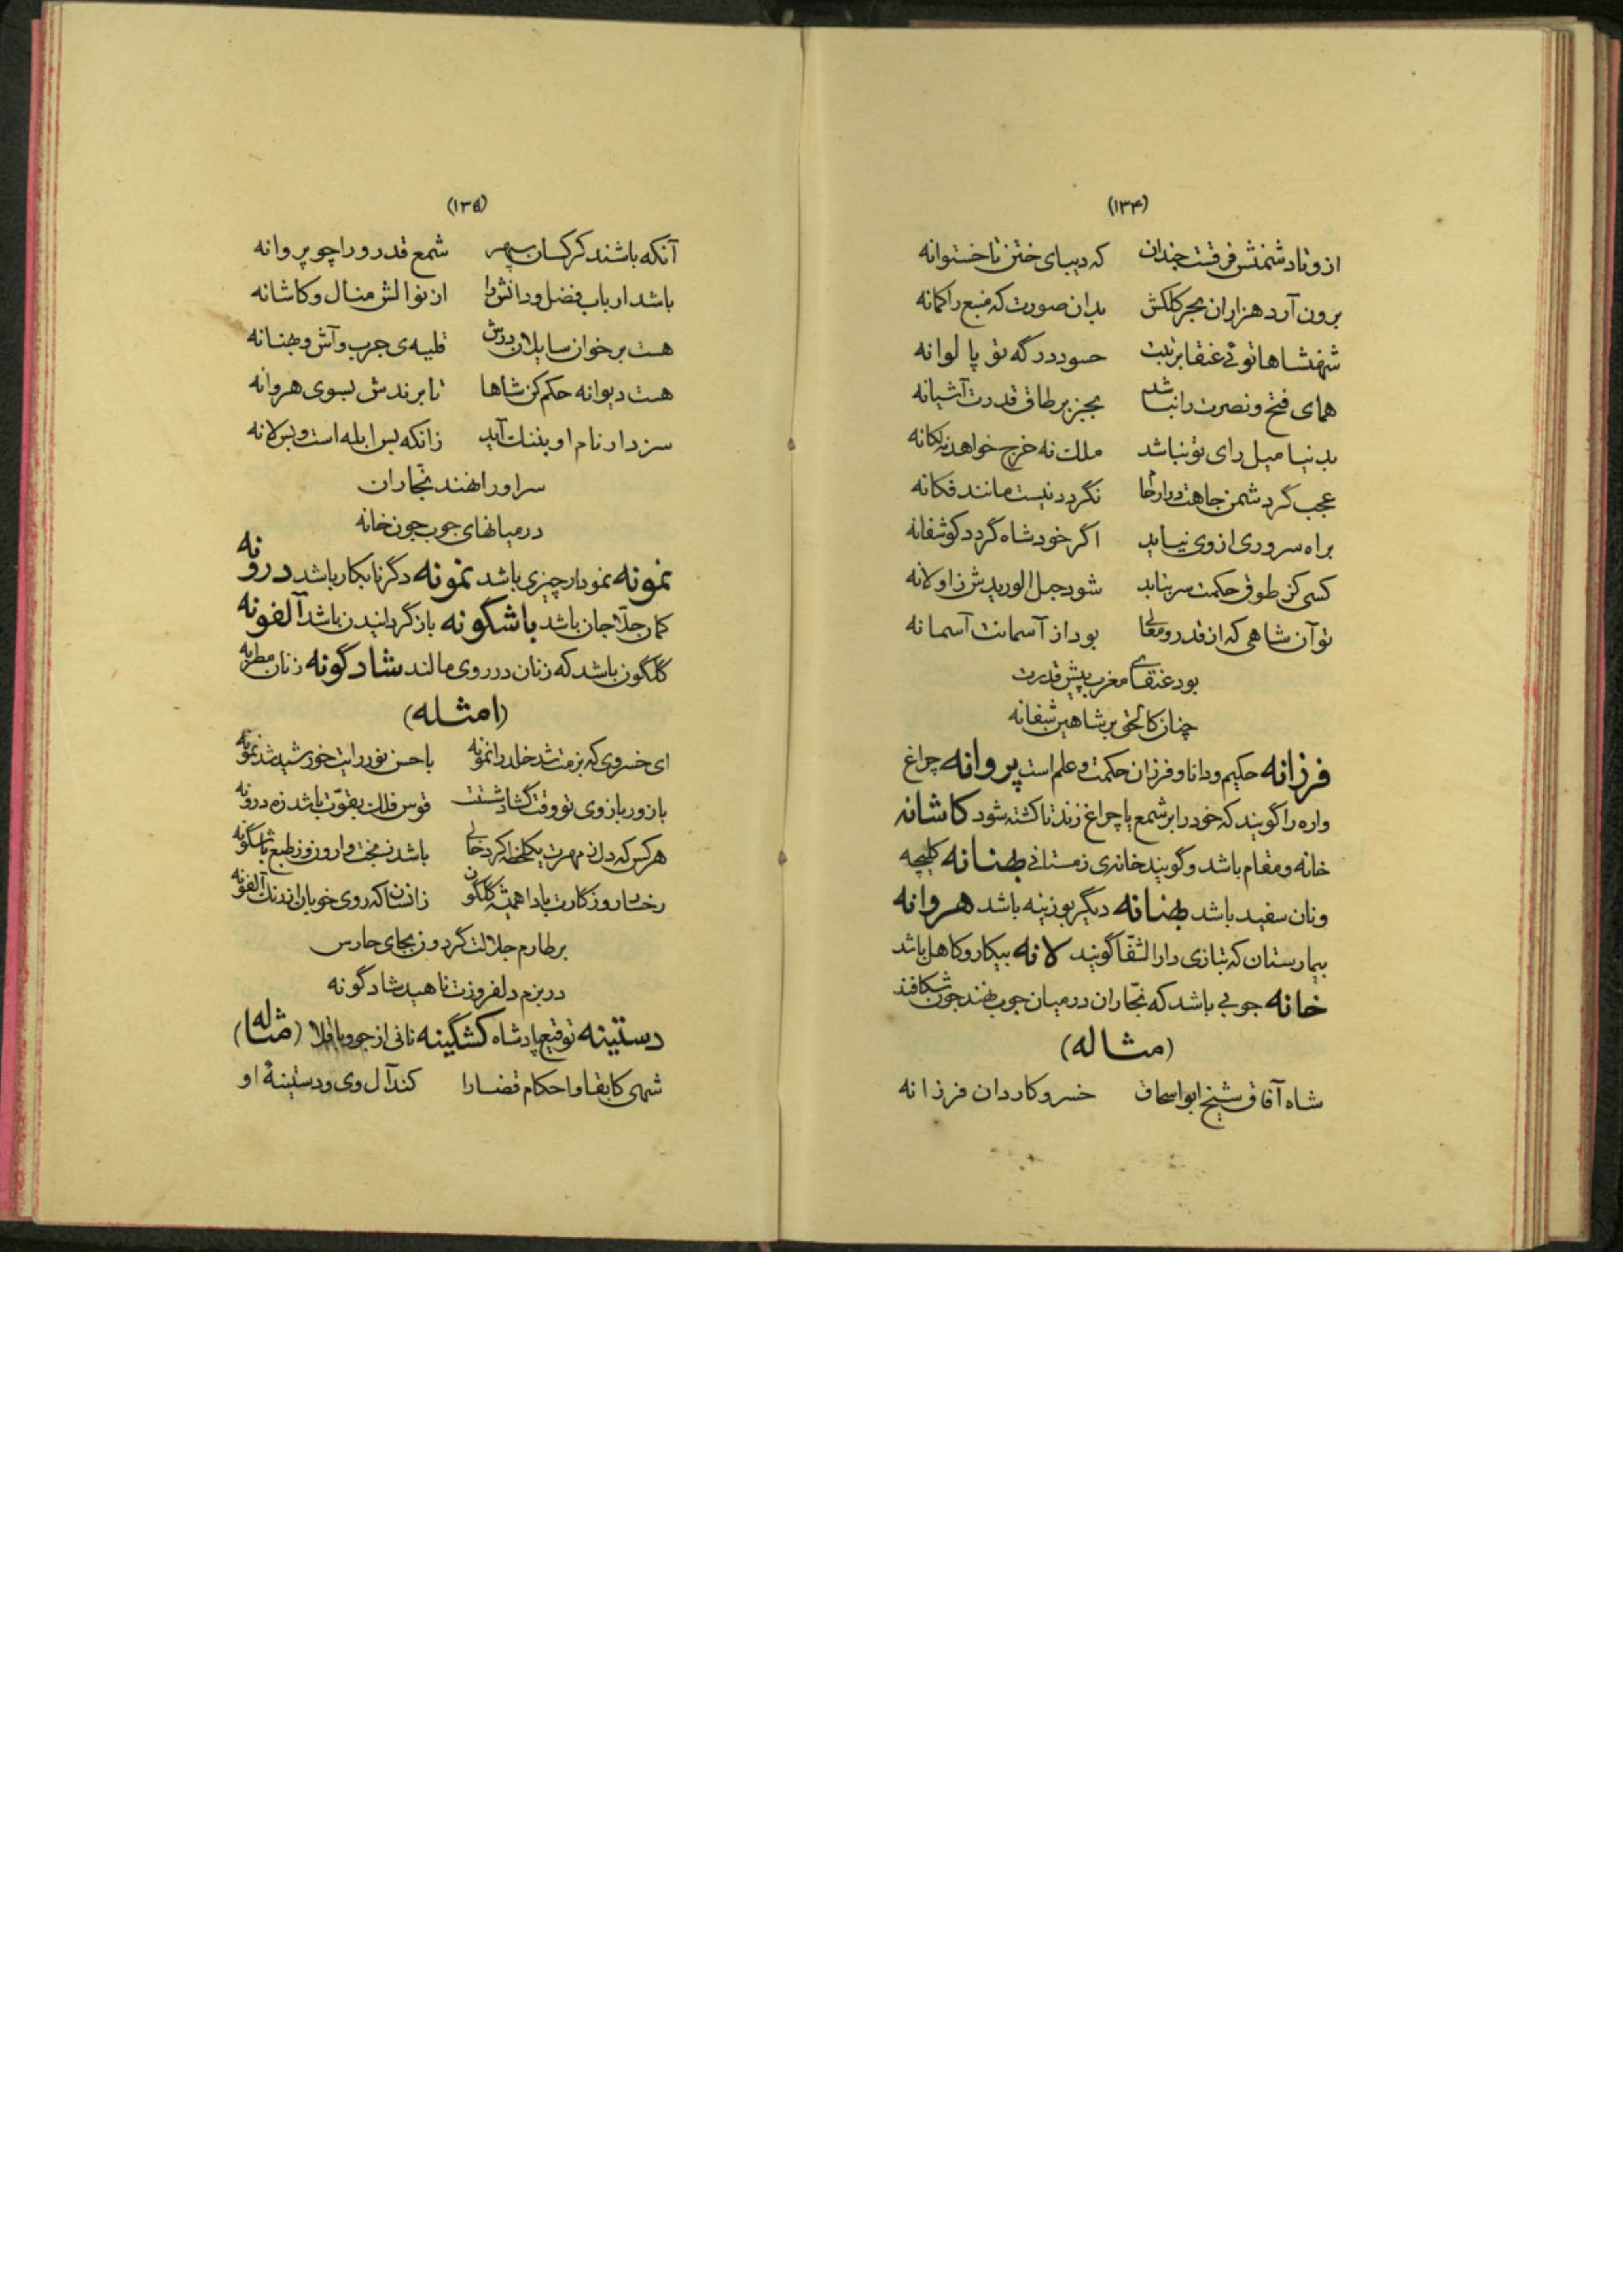 (۱۳۴)
ازو تا دشمنش فرقست چندان که دیبای ختن تا خستوانه
برون آرد هزاران بحر کلکش بدان صورت که منبع را کمانه
شهنشاها توئی عنقا برتبت حسود درگه تو پالوانه
همای فتح و نصرت را نباشد بجز بر طاق قدرت آشیانه
بدنیا میل رای تو نباشد ملک نه خرج خواهد نه لکانه
عجب گر دشمن جاهت نگردد نیست مانند فکانه
براه سروری از وی نیاید اگر خود شاه گردد کوشفانه
کسی کز طوق حکمت سر بتابد شود حبل الوریدش زاولانه
تو آن شاهی که از قدر و معالی بود از آسمانت آسمانه
بود عنقای مغرب پیش قدرت
چنان کالختی بر شاهین شفانه
فرزانه حکیم و دانا و فرزان حکمت و علم است پروانه چراغ
واره را گویند که خود را بر شمع یا چراغ زند تا کشته شود کاشانه
خانه و مقام باشد و گویند خانه‌ی زمستانی بهنانه کلیچه
و نان سفید باشد بهنانه دیگر بوزینه باشد هروانه
بیمارستان که بتازی دار الشفا گویند لانه بیکار و کاهل باشد
خانه چوبی باشد که نجّاران در میان چوب نهند چون شکافند
(مثاله)
شاه آفاق شیخ ابو اسحاق خسرو کاردان فرزانه
(۱۳۵)
آنکه باشند کرکسان سپهر شمع قدر ورا چو پروانه
باشد ارباب فضل و دانش را از نوالش منال و کاشانه
هست بر خوان سایلان درش قلیه‌ی چرب و آش و بهنانه
هست دیوانه حکم کن شاها تا برندش بسوی هروانه
سزد ار نام او بننگ آید زانکه بس ابله است و بس لانه
سر او را نهند نجّاران
در میانهای چوب چون خانه
نمونه نمودار چیزی باشد نمونه دگر نابکار باشد درونه
کمان حلّاجان باشد باشگونه بازگردانیدن باشد آلفونه
گلگون باشد که زنان در روی مالند شادگونه زنان مطربه
(امثله)
ای خسروی که بزمت شد خلد را نمونه با حسن نور رایت خورشید شد نمونه
با زور بازوی تو وقت گشاد شستت قوس فلک بقوّت باشد زه درونه
هر کس که دل ز مهرت یکلحظه کرد خالی باشد ز بخت وارون وز طبع باشگونه
رخسار روزگارت بادا همیشه گلگون زانسان که روی خوبان از رنگ آلفونه
بر طارم جلالت گردون بجای حارس
در بزم دلفروزت ناهید شادگونه
دستینه توقیع پادشاه کشگینه نانی از جو و باقلا (مثاله)
شهی کابقا و احکام قضا را کند آل وی و دستینهٔ او